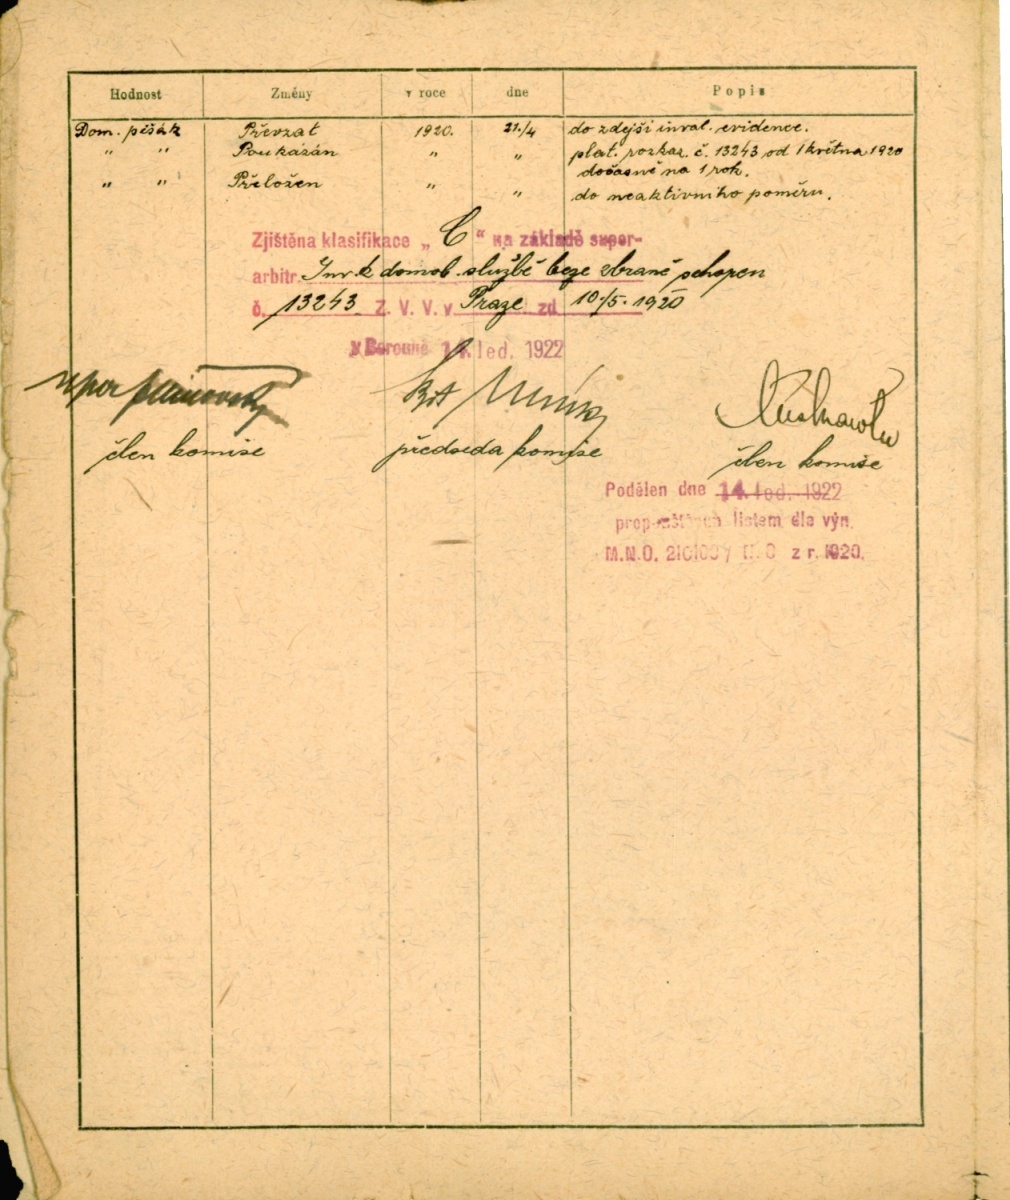 Hodnost Změny v roce dne Popis
Dom. pěšák Převzat 1920. 21./4 do zdejší inval. evidence.
" " Poukázán " " plat. rozkaz č. 13243 od 1 května 1920
dočasně na 1 rok.
" " Přeložen " " do neaktivního poměru.
Zjištěna klasifikace „ C “ na základě super-
arbitr. Inv. k domob. službě beze zbraně schopen
č. 13243 Z. V. V. v Praze zd 10./5. 1920
v Berouně 14. led. 1922
člen komise předseda komise člen komise
Podělen dne 14. led. 1922
listem dle výn.
M.N.O. z r. 1920.